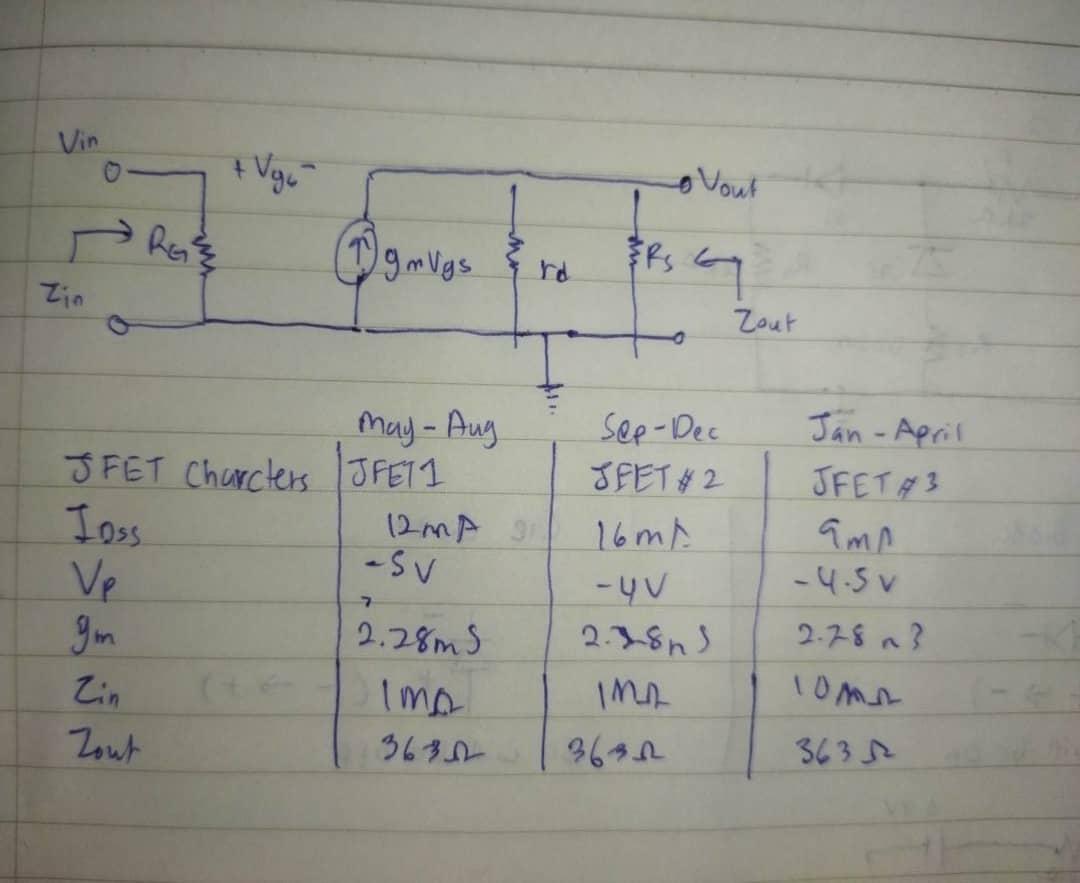 Vin
+ Vgs -
Vout
RG
gmVgs
rd
Rs
Zin
Zout
May - Aug Sep - Dec Jan - April
JFET Charcters JFET 1 JFET # 2 JFET # 3
IDSS 12mA 16mA 9mA
Vp -5V -4V -4.5V
gm 2.28mS
Zin 1mΩ 1MΩ 10MΩ
Zout 363Ω 363Ω 363Ω